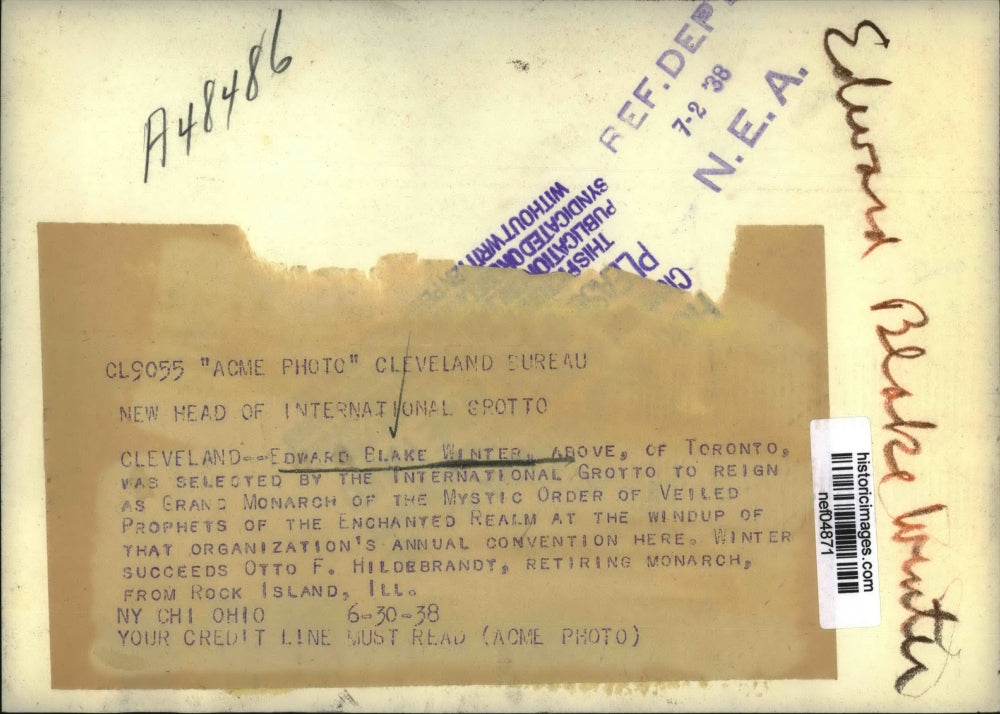 A48486
REF. DEPT
7-2 '38
N. E. A.
Edward Blake Winter
PUBLICATION
SYNDICATED
WITHOUT
CL9055 "ACME PHOTO" CLEVELAND BUREAU
NEW HEAD OF INTERNATIONAL GROTTO
CLEVELAND--EDWARD BLAKE WINTER, ABOVE, OF TORONTO,
WAS SELECTED BY THE INTERNATIONAL GROTTO TO REIGN
AS GRAND MONARCH OF THE MYSTIC ORDER OF VEILED
PROPHETS OF THE ENCHANTED REALM AT THE WINDUP OF
THAT ORGANIZATION'S ANNUAL CONVENTION HERE. WINTER
SUCCEEDS OTTO F. HILDEBRANDT, RETIRING MONARCH,
FROM ROCK ISLAND, ILL.
NY CHI OHIO 6-30-38
YOUR CREDIT LINE MUST READ (ACME PHOTO)
historicimages.com
nef04871